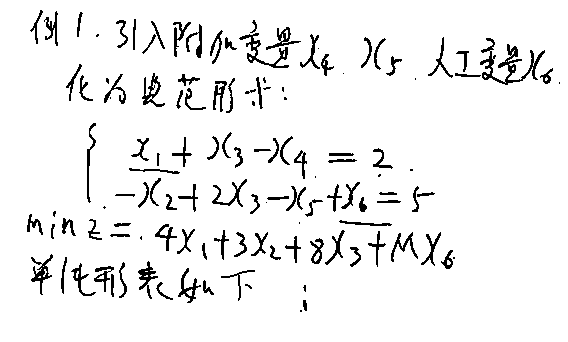 例1. 引入附加变量X4 X5 人工变量X6
化为典范形式:
x1 + x3 - x4 = 2
-x2 + 2x3 - x5 + x6 = 5
min z = 4x1 + 3x2 + 8x3 + Mx6
单纯形表如下